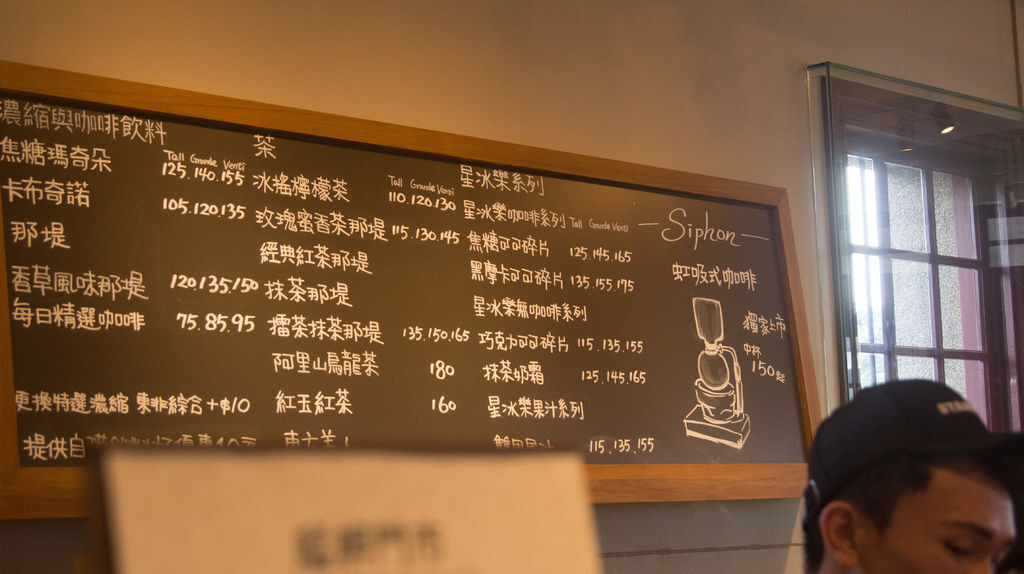 濃縮與咖啡飲料
Tall Grande Venti
焦糖瑪奇朵 125.140.155
卡布奇諾 105.120.135
那堤
香草風味那堤 120/135/150
每日精選咖啡 75.85.95
更換特選濃縮 東非綜合+$10
提供自
茶
Tall Grande Venti
冰搖檸檬茶 110.120.130
玫瑰蜜香茶那堤 115.130.145
經典紅茶那堤
抹茶那堤
擂茶抹茶那堤 135.150.165
阿里山烏龍茶 180
紅玉紅茶 160
東方美人
星冰樂系列
星冰樂咖啡系列 Tall Grande Venti
焦糖可可碎片 125.145.165
黑摩卡可可碎片 135.155.175
星冰樂無咖啡系列
巧克力可可碎片 115.135.155
抹茶奶霜 125.145.165
星冰樂果汁系列
115.135.155
—Siphon—
虹吸式咖啡
獨家上市
中杯
150起